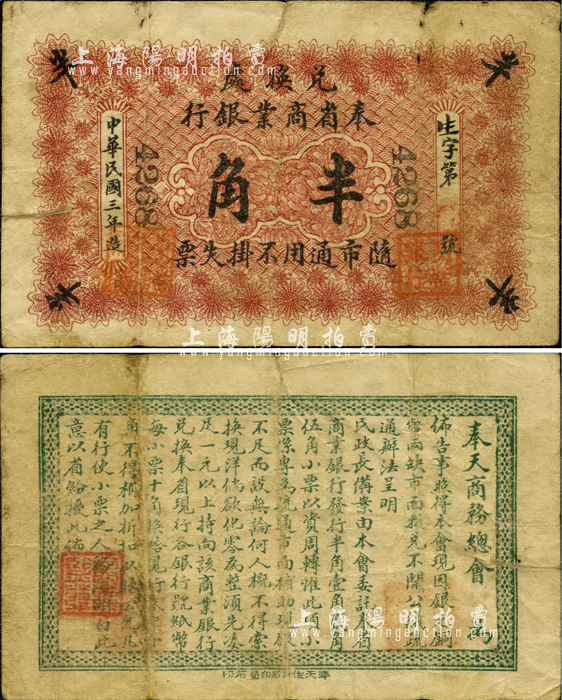 上海陽明拍賣
www.yangmingauction.com
兌換處
奉省商業銀行
生字第
號
4268
半角
4268
中華民國三年造
隨市通用不掛失票
上海陽明拍賣
www.yangmingauction.com
奉天商務總會
佈告事照得本會現因銀
兩缺市面
通辦法呈明
民政長備案由本會委託奉省
商業銀行發行半角壹角貳角
伍角小票以資周轉惟此項小
票係專為流通市面補助現
不足而設無論何人概不得索
換現洋倘欲化零為整須先湊
足一元以上持向該商業銀行
兌換奉省現行各銀行號紙幣
每小票十角換
角不得稍加折扣以
有行使小票之人
意以省紛擾此佈
上海陽明拍賣
www.yangmingauction.com